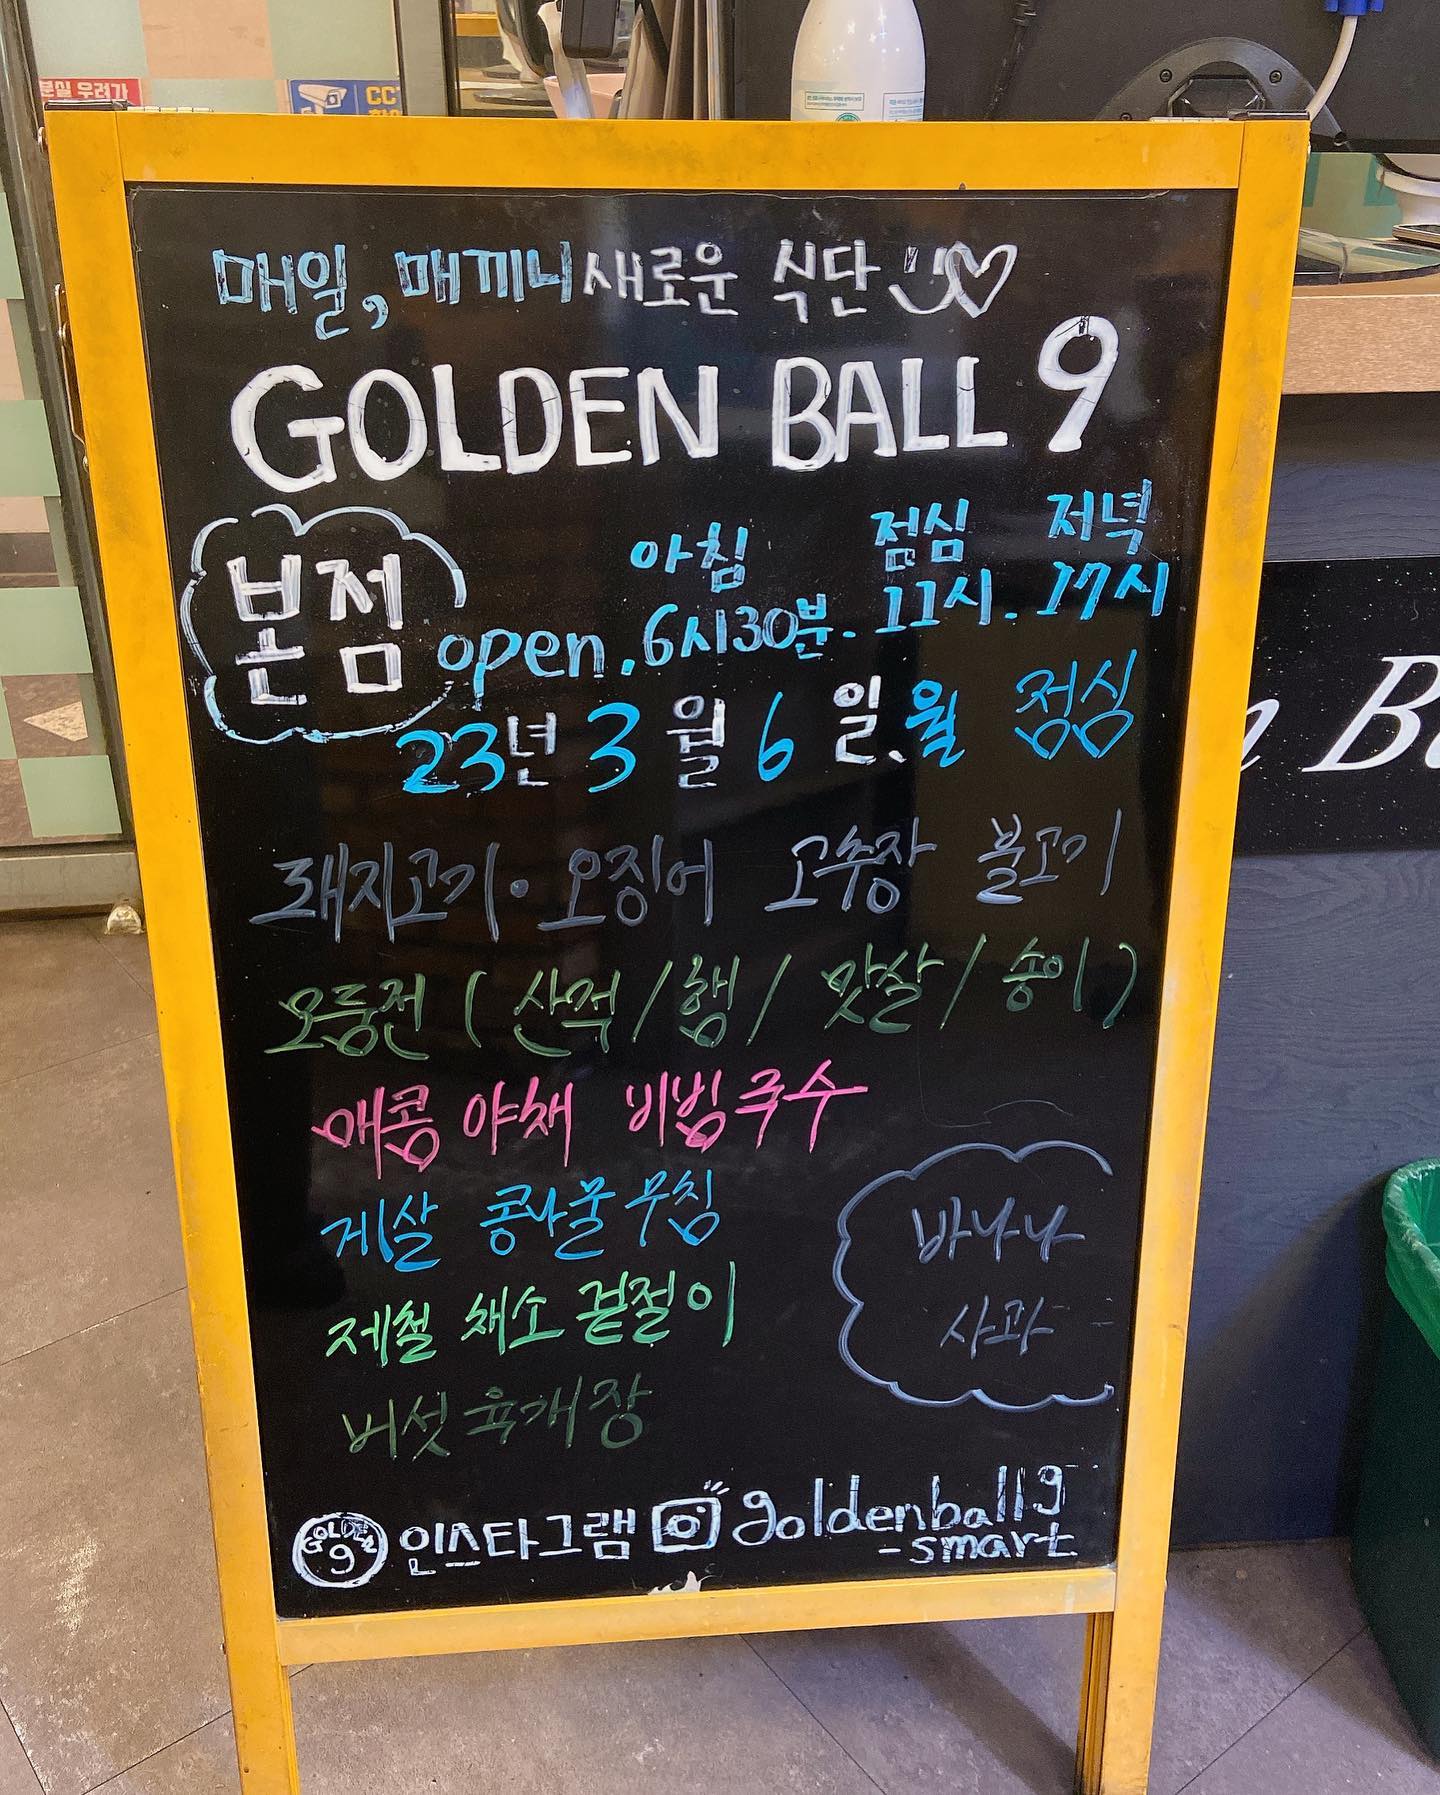 분실 우려가
CC
매일, 매끼니 새로운 식단
GOLDEN BALL 9
본점
아침 점심 저녁
open. 6시30분. 11시. 17시
23년 3월 6일. 월 점심
돼지고기·오징어 고추장 불고기
모둠전 (산적/햄/맛살/송이)
매콤 야채 비빔국수
게살 콩나물무침
제철 채소 겉절이
버섯육개장
바나나
사과
GOLDEN 9
인스타그램 goldenball9
-smart
B